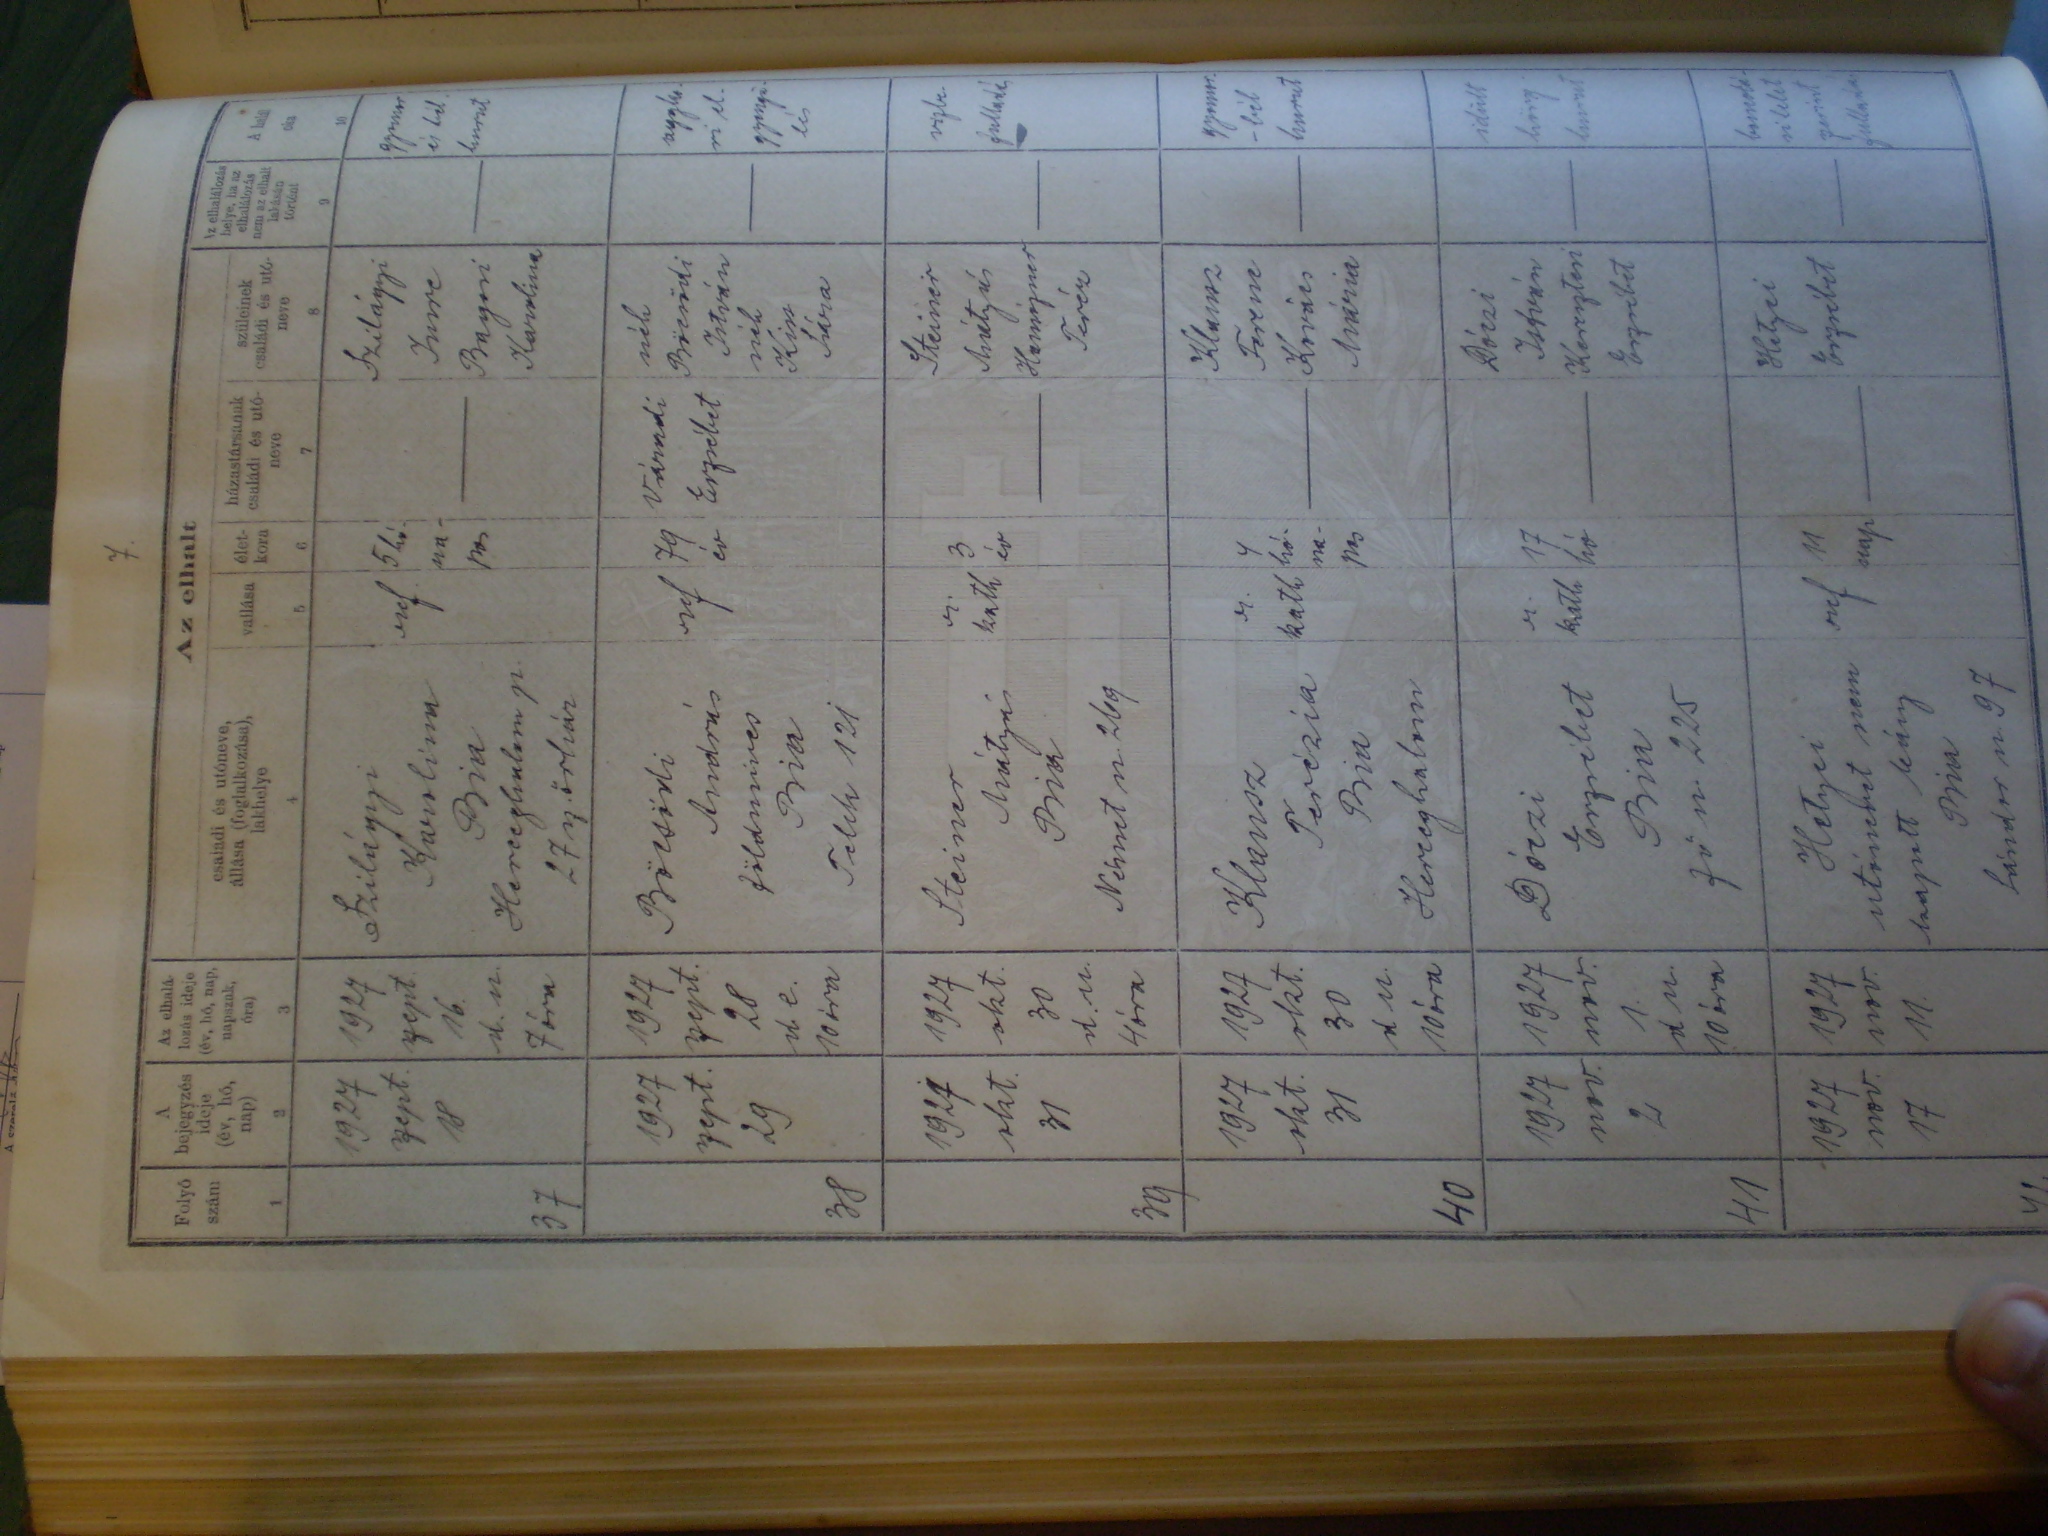 7.
Az elhalt
Folyó
szám
A
bejegyzés
ideje
(év, hó,
nap)
Az elhalá-
lozás ideje
(év, hó, nap,
napszak,
óra)
családi és utóneve,
állása (foglalkozása),
lakhelye
vallása
élet-
kora
házastársanak
családi és utó-
neve
szüleinek
családi és utó-
neve
Az elhalálozás
helye, ha az
elhalálozás
nem az elhalt
lakásán
történt
A halál
oka
1
2
3
4
5
6
7
8
9
10
37
1927
szept.
18
1927
szept.
16.
d. u.
7 óra
Szilágyi
Karolina
Bia
Herceghalom p.
27 sz. őrház
ref.
5 hó-
na-
pos
Szilágyi
Imre
Bagosi
Karolina
gyomor
és bél-
hurut
38
1927
szept.
29
1927
szept.
28
d. e.
10 óra
Bölsödi
András
földmives
Bia
Telek 121
ref
79
év
Váradi
Erzsébet
néh
István
néh
Kiss
Sára
aggko-
ri el-
gyengü-
lés
39
1927
okt.
31
1927
okt.
30
d. u.
4 óra
Steiner
Mátyás
Bia
Német u. 269
r.
kath
3
év
Steiner
Mátyás
Teréz
vizbe-
fulladás
40
1927
okt.
31
1927
okt.
30
d u.
10 óra
Klausz
Terézia
Bia
Herceghalom
r.
kath
4
hó-
na-
pos
Klausz
Ferenc
Kovács
Mária
gyomor-
-bél
hurut
41
1927
nov.
2
1927
nov.
1.
d u.
10 óra
Dóczi
Erzsébet
Bia
fő u. 225
r.
kath
17
hó
Dóczi
István
Keresztesi
Erzsébet
idült
hörg
hurut
1927
nov.
17
1927
nov.
11.
Hetyei
utónevet nem
kapott leány
Bia
Sándor u. 97
ref
11
nap
Hetyei
Erzsébet
szerint